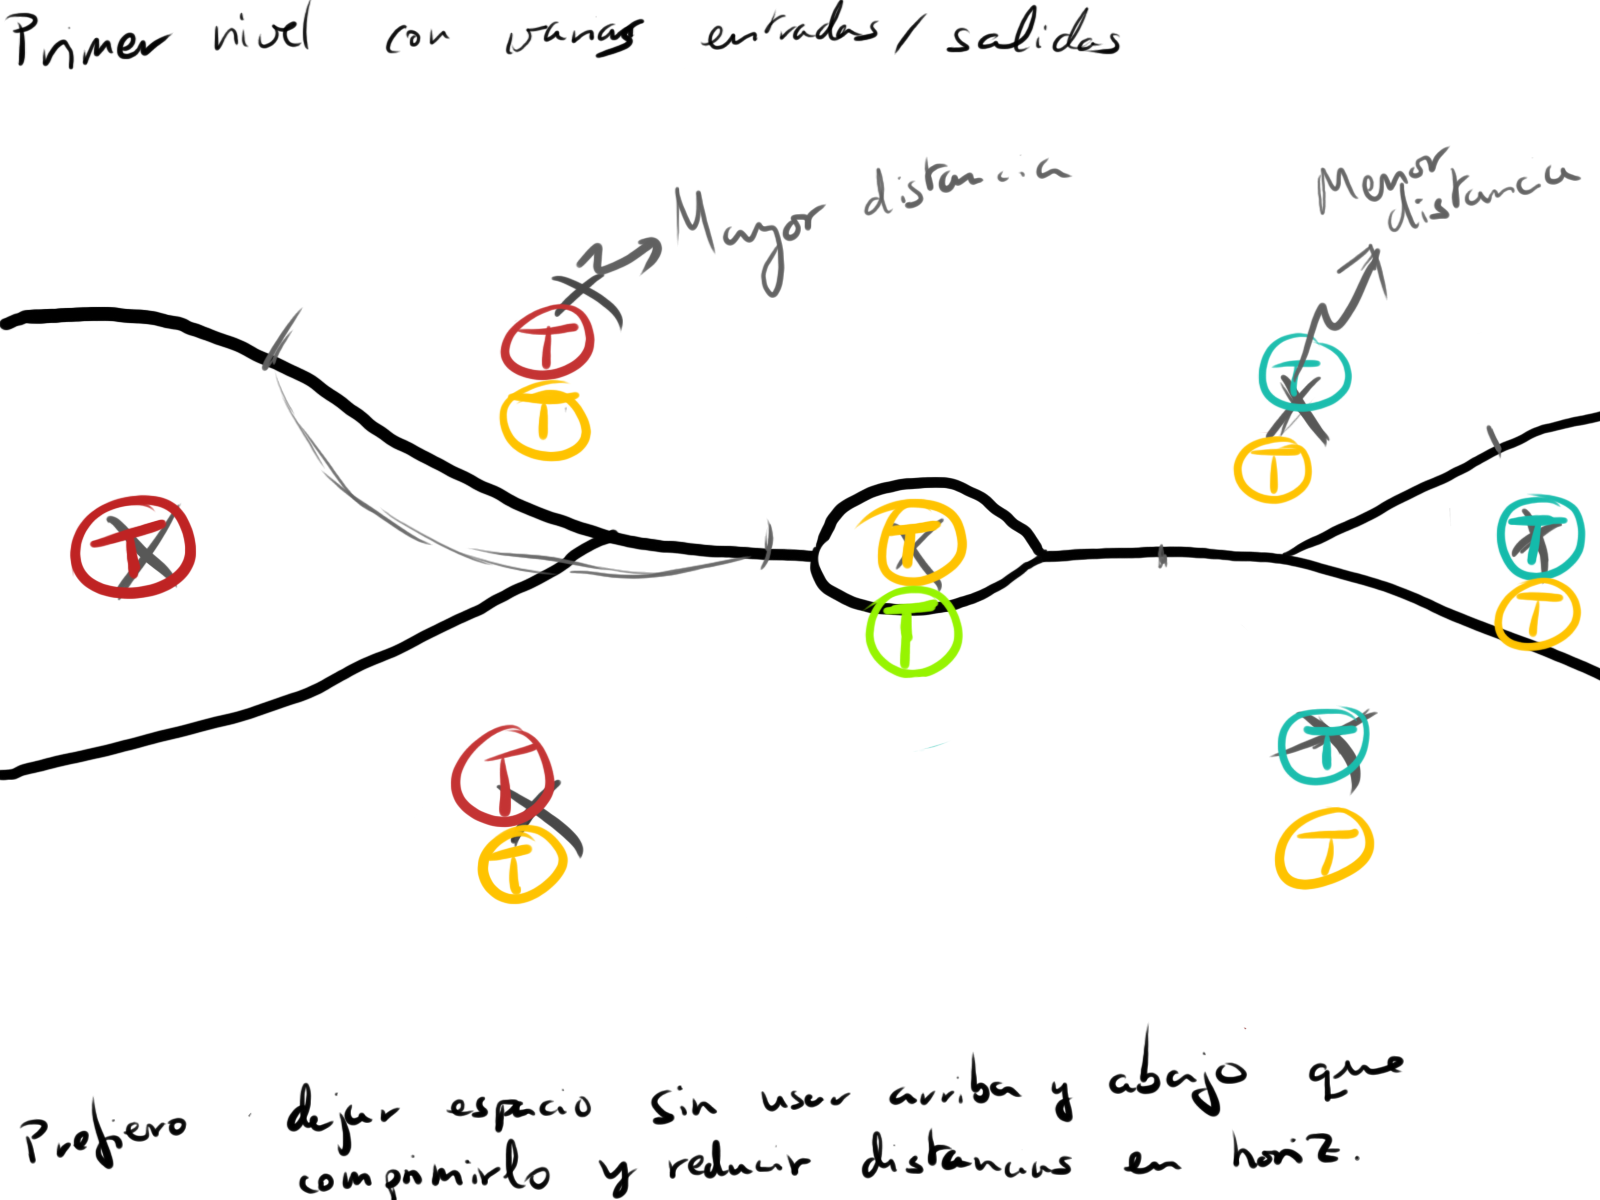 Primer nivel con varias entradas / salidas
Mayor distancia
Menor
distancia
T
T
T
T
T
T
T
T
T
T
T
T
T
Prefiero dejar espacio sin usar arriba y abajo que
comprimirlo y reducir distancias en horiz.